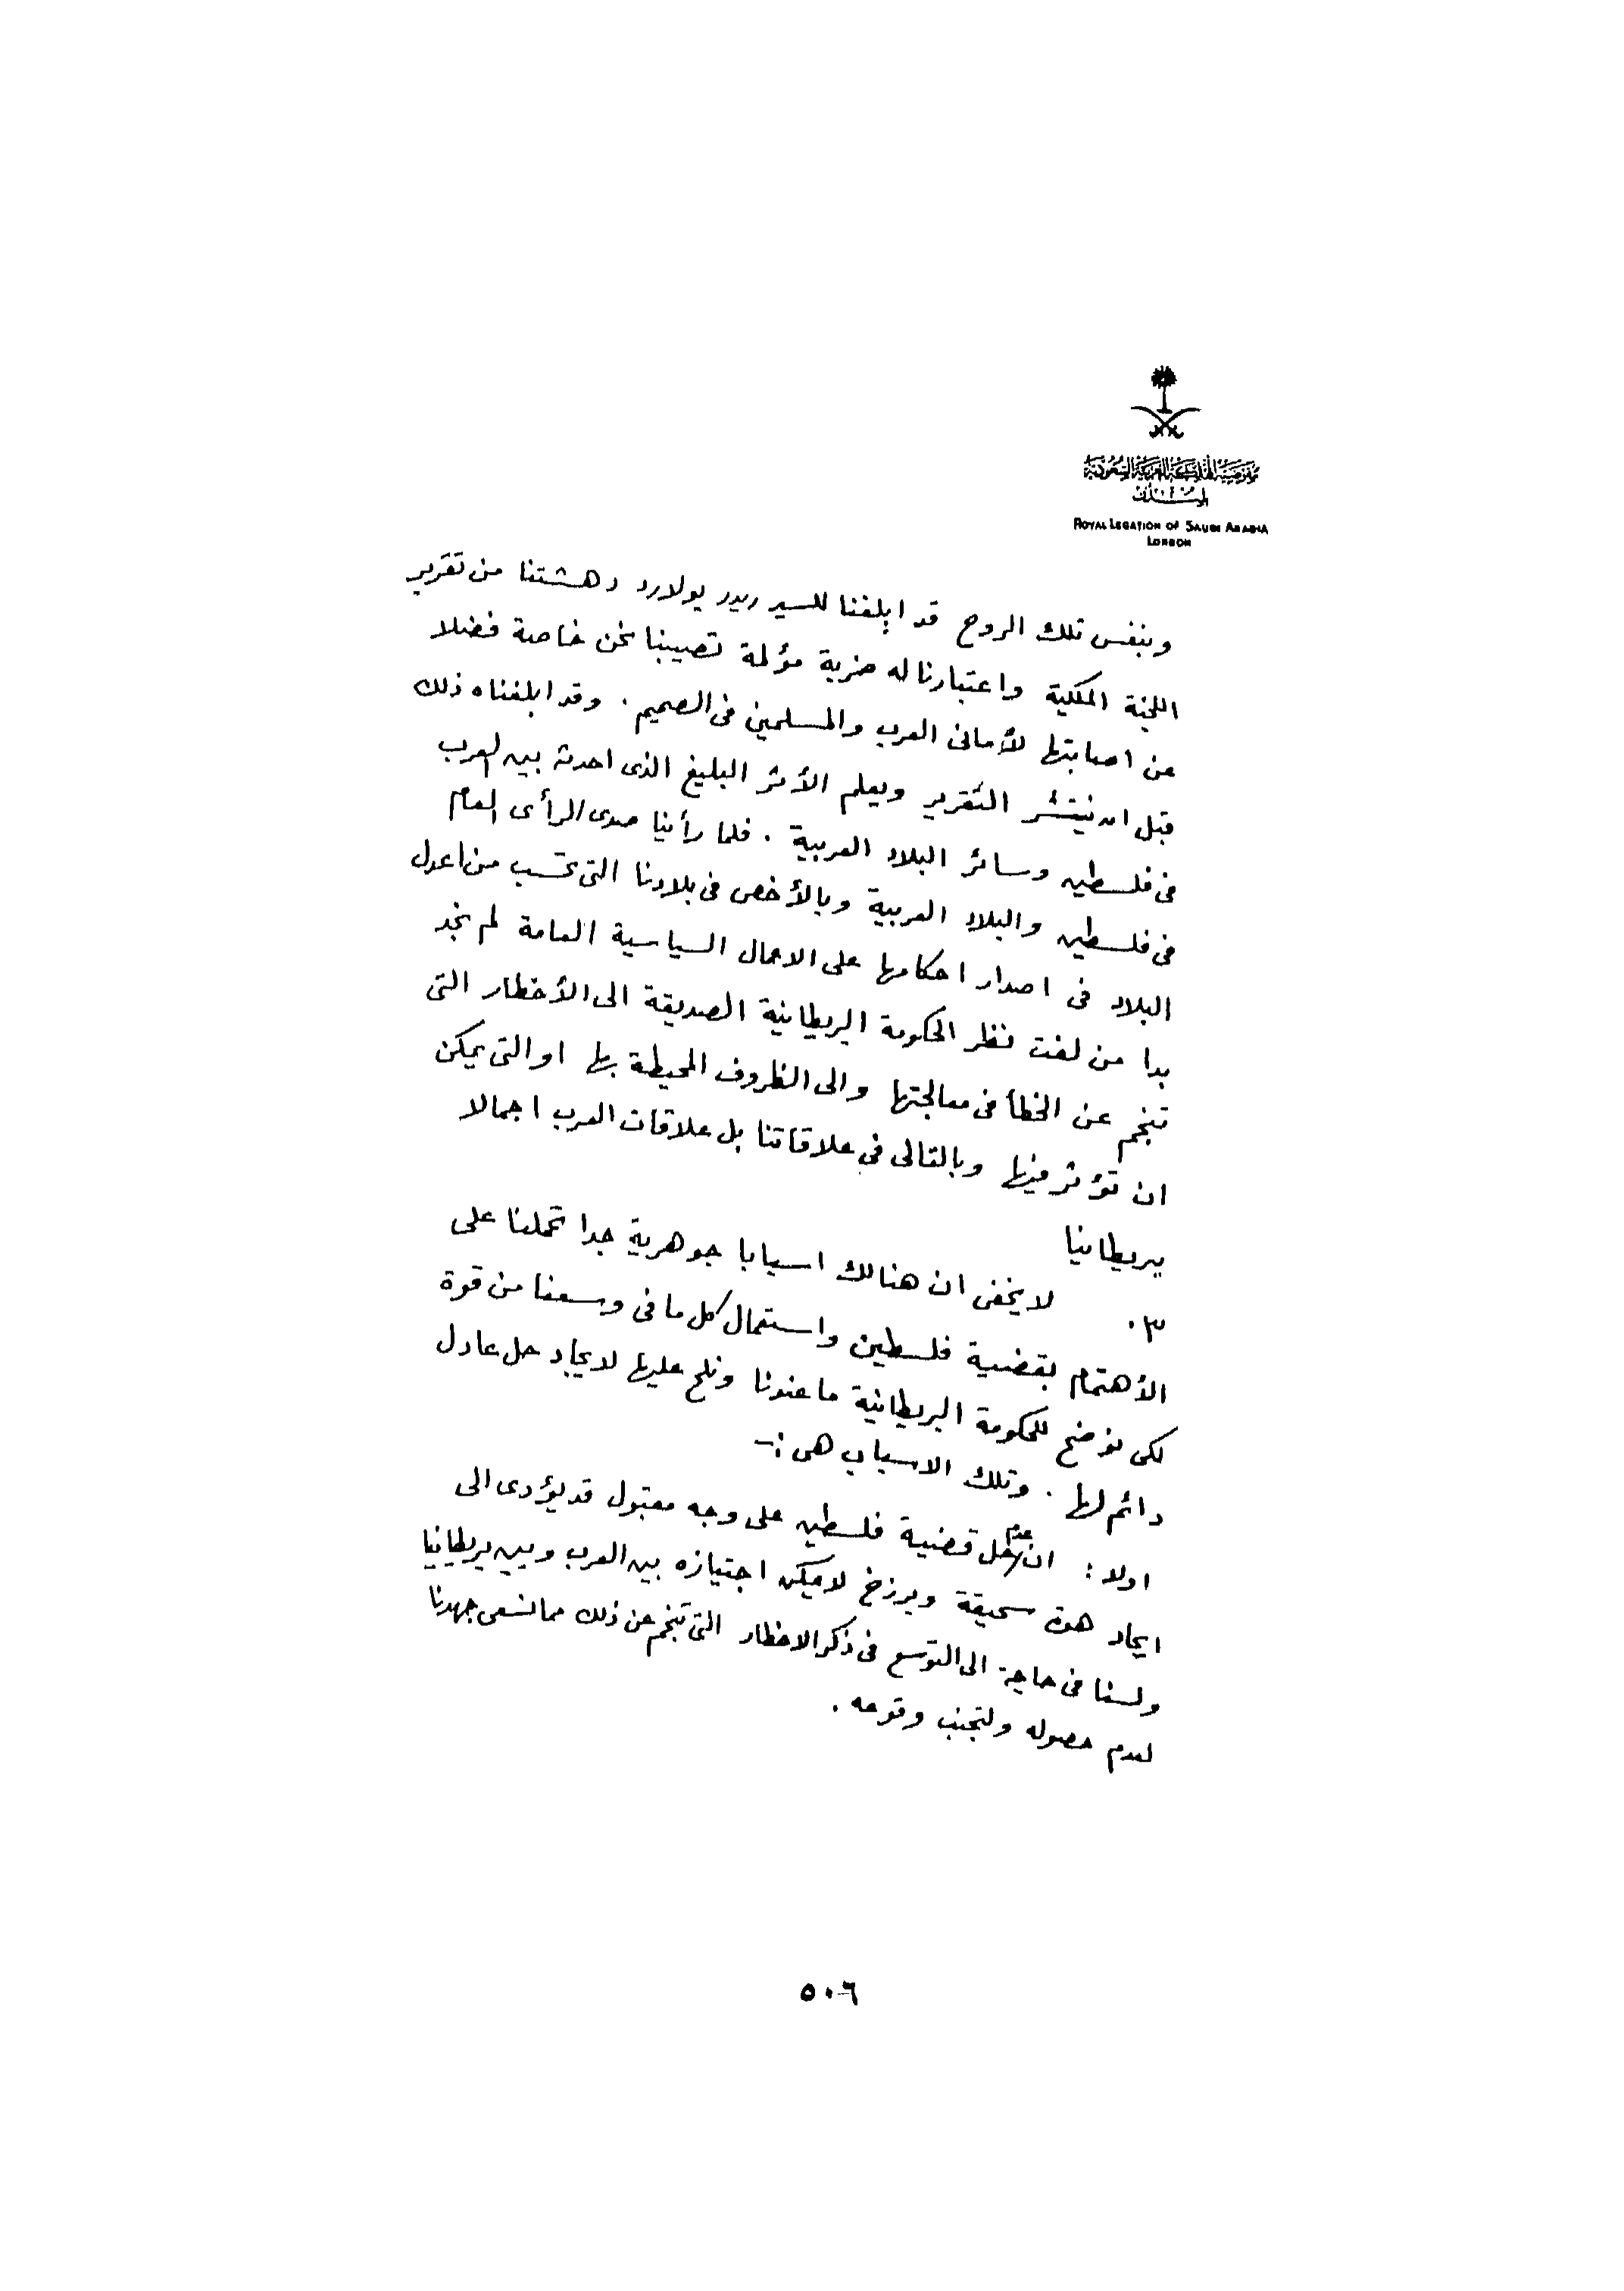 مفوضية المملكة العربية السعودية
لندن
ROYAL LEGATION OF SAUDI ARABIA
LONDON
وبنفس تلك الروح قد ابلغنا للسير ريدر بولارد دهشتنا من تقرير
اللجنة الملكية واعتبارنا له ضربة مؤلمة تصيبنا نحن خاصة فضلا
عن اصابتها للأمانى العرب والمسلمين فى الصميم . وقد ابلغناه ذلك
قبل ان ينتشر التقرير ويعلم الأثر البليغ الذى احدثه بين العرب
فى فلسطين وسائر البلاد العربية . فلما رأينا صدى الرأى العام
فى فلسطين والبلاد العربية وبالأخص فى بلادنا التى تحسب من اعدل
البلاد فى اصدار احكامها على الاعمال السياسية العامة لم نجد
بدا من لفت نظر الحكومة البريطانية الصديقة الى الأخطار التى
تنجم عن الخطأ فى معالجتها والى الظروف المحيطة بها او التى يمكن
ان تؤثر فيها وبالتالى فى علاقاتنا بل علاقات العرب اجمالا
ببريطانيا
٣٠ لا يخفى ان هنالك اسبابا جوهرية جدا تحملنا على
الأهتمام بقضية فلسطين واستعمال كل ما فى وسعنا من قوة
لكى نوضح للحكومة البريطانية ما عندنا ونلح عليها لايجاد حل عادل
دائم لها . وتلك الاسباب هى :-
اولا : ان عدم حل قضية فلسطين على وجه مقبول قد يؤدى الى
ايجاد هوة سحيقة وبرزخ لا يمكن اجتيازه بين العرب وبين بريطانيا
ولسنا فى حاجة الى التوسع فى ذكر الاخطار التى تنجم عن ذلك مما نسعى جهدنا
لعدم حصوله ولتجنب وقوعه .
٥٠٦